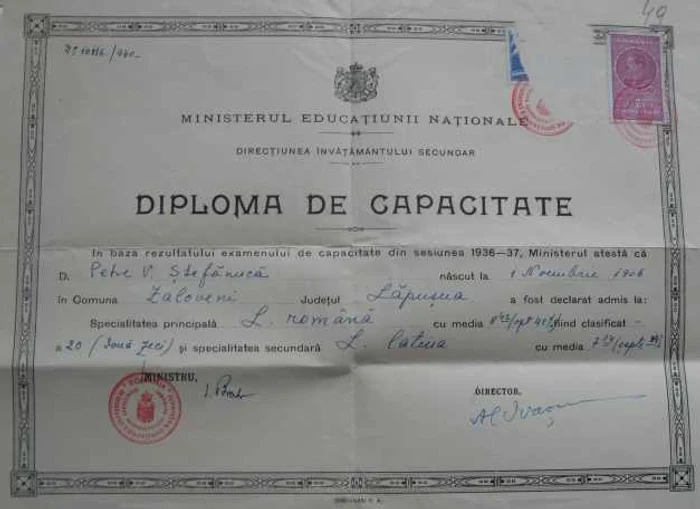 49
MINISTERUL EDUCAȚIUNII NAȚIONALE
DIRECȚIUNEA ÎNVĂȚĂMÂNTULUI SECUNDAR
DIPLOMA DE CAPACITATE
In baza rezultatului examenului de capacitate din sesiunea 1936-37, Ministerul atestă că
D. Petre V. Ștefănucă născut la 1 Noembrie 1906
în Comuna Zăloveni Județul Lăpușna a fost declarat admis la:
Specialitatea principală L. română cu media fiind clasificat -
a 20 (două zeci) și specialitatea secundară L. latina cu media
MINISTRU,
DIRECTOR,